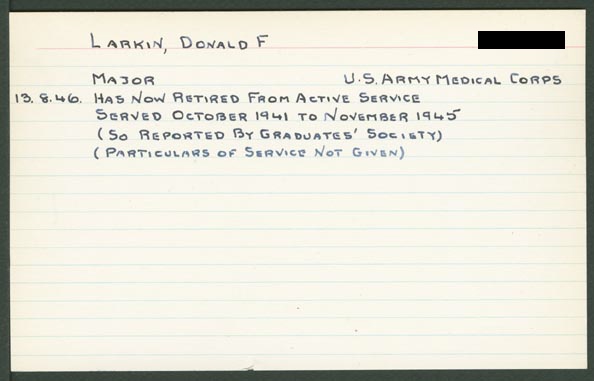 LARKIN, DONALD F
MAJOR U.S. ARMY MEDICAL CORPS
13.8.46. HAS NOW RETIRED FROM ACTIVE SERVICE
SERVED OCTOBER 1941 TO NOVEMBER 1945
(SO REPORTED BY GRADUATES' SOCIETY)
(PARTICULARS OF SERVICE NOT GIVEN)